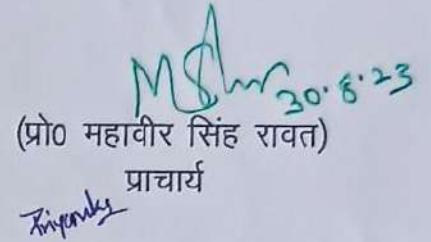 30.8.23
(प्रो0 महावीर सिंह रावत)
प्राचार्य
Priyanka